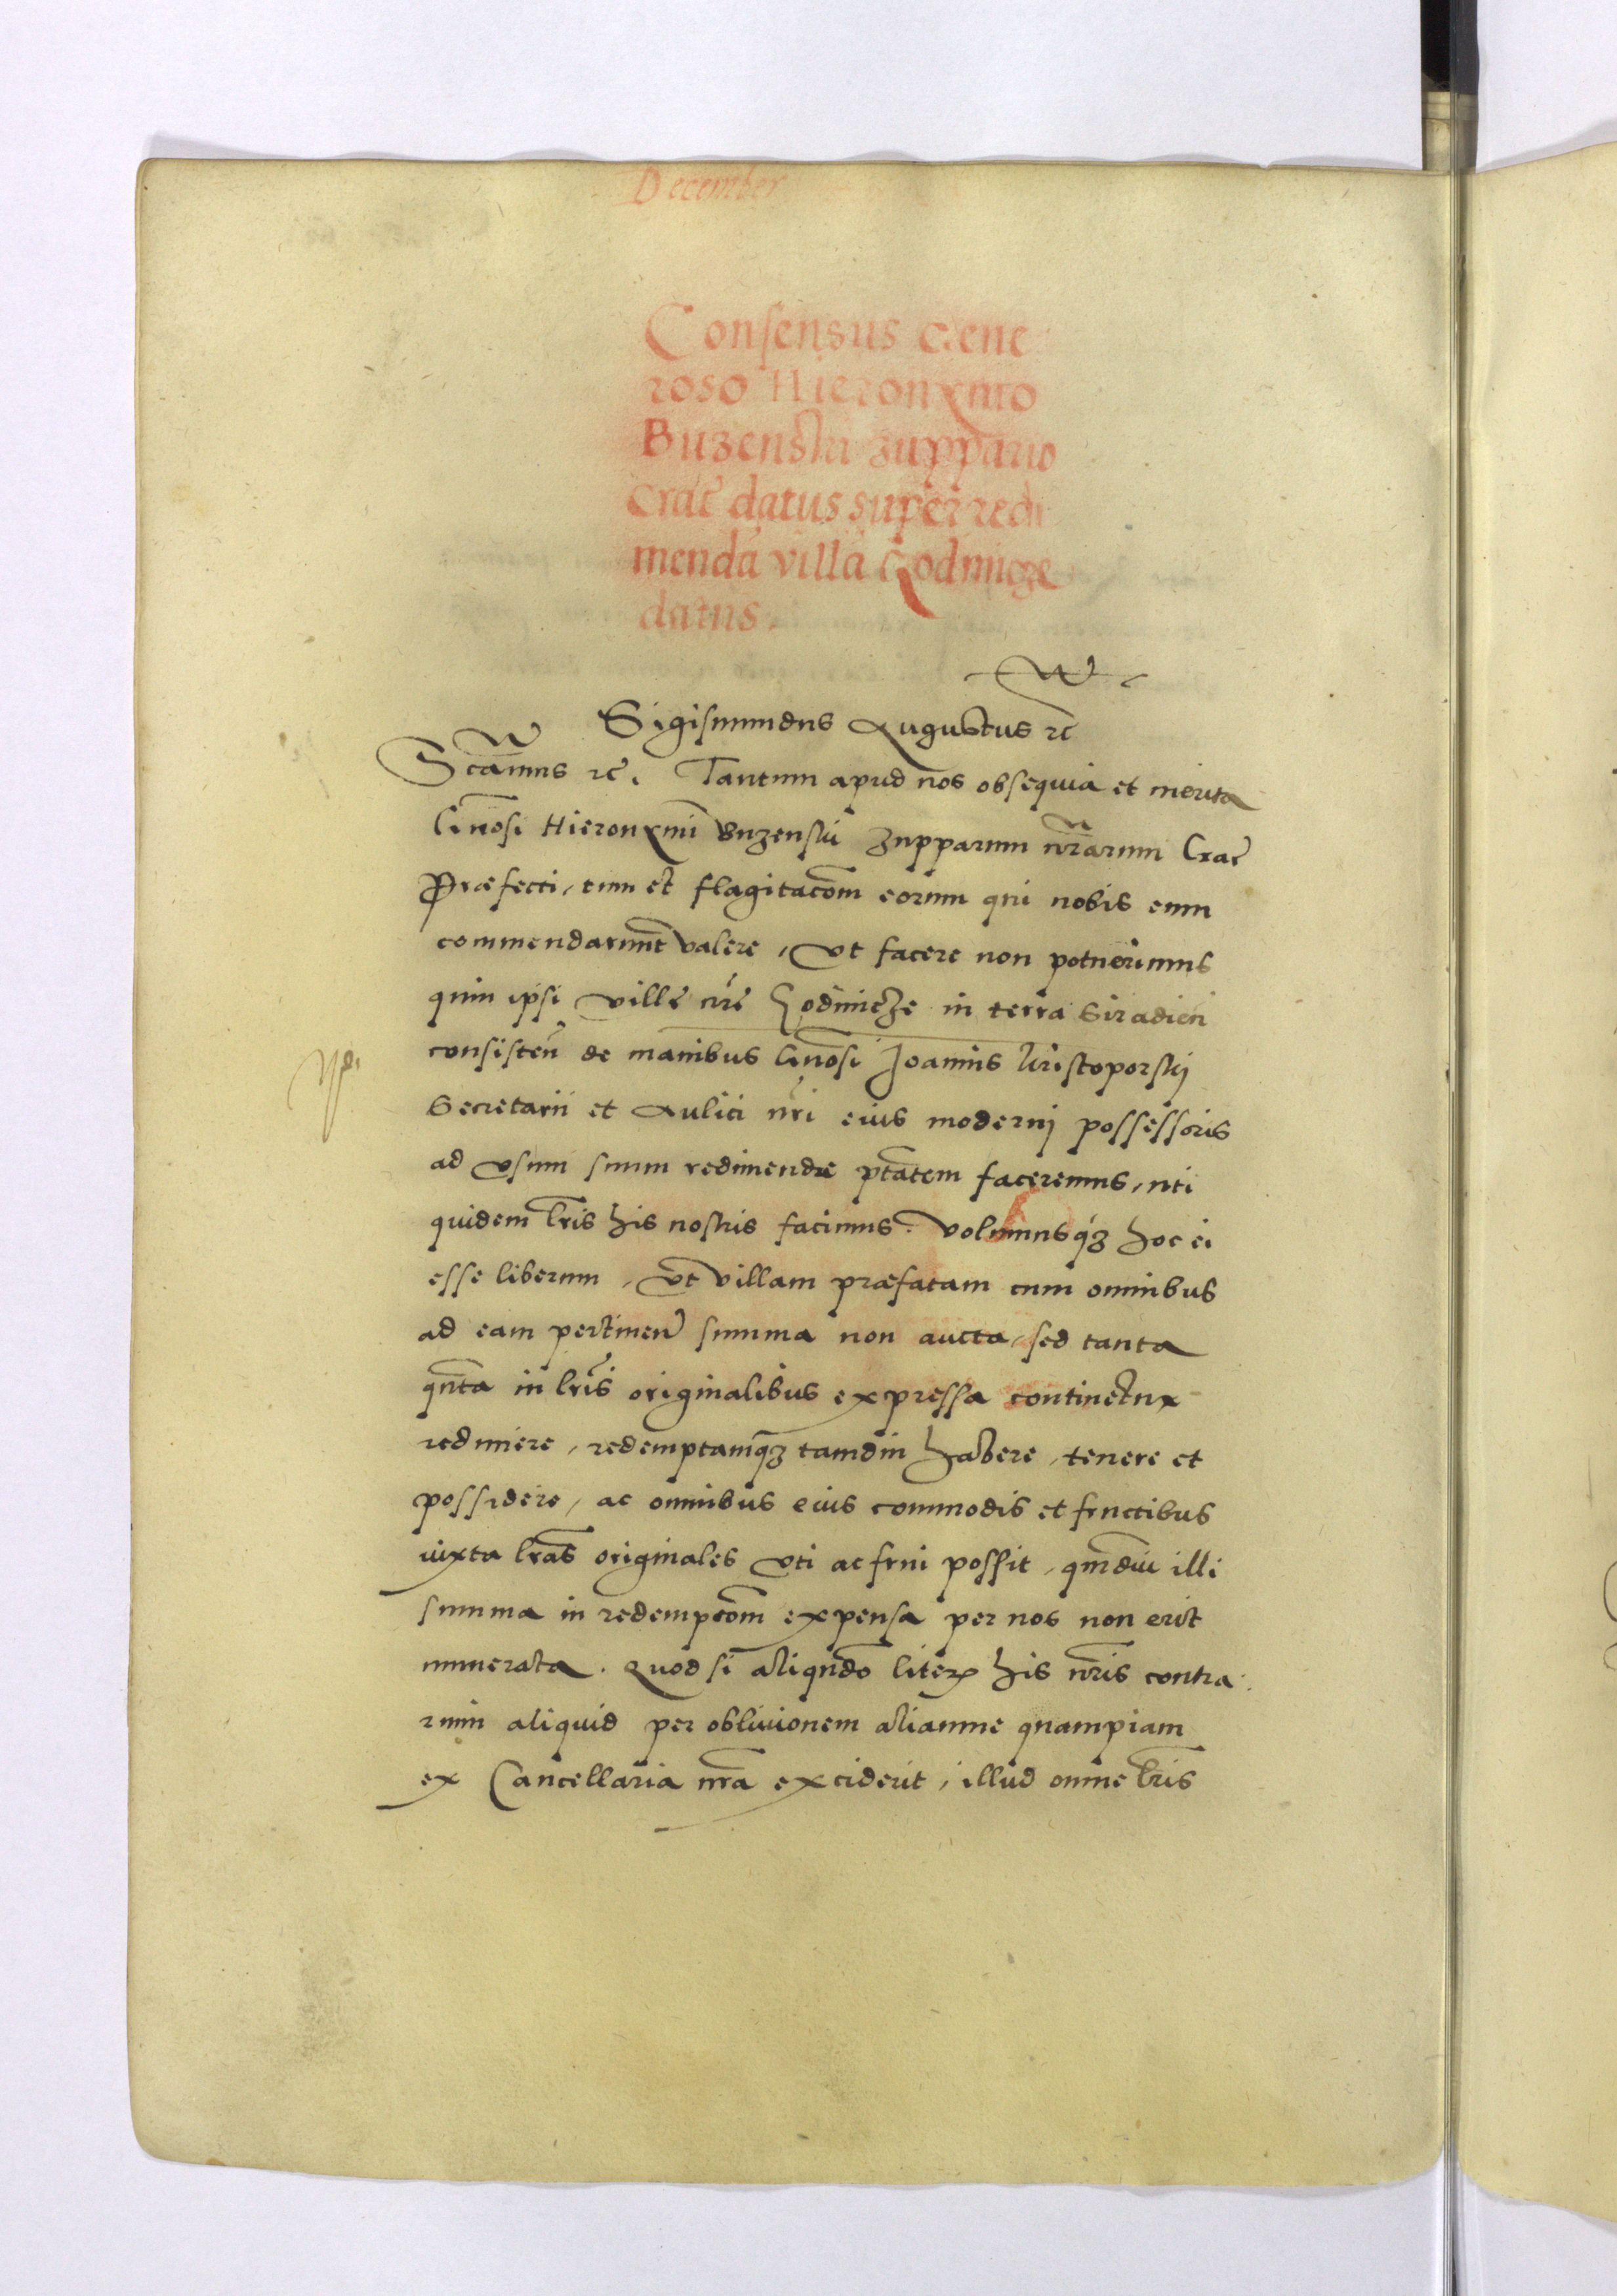 December
Consensus Gene
roso Hieronymo
Buzenski zuppario
Crac̄ datus super redi
menda villa Godnicze
datus.
Sigismundus Augustus ꝛc̄
Sc̄amus ꝛc̄. Tantum apud nos obsequia et merita
Gn̄osi Hieronymi Buzenskii Zupparum nr̄arum Crac̄
Præfecti, tum et flagitac̄om eorum qui nobis eum
commendarunt valere, Vt facere non potuerimus
quin ipsi villę nr̄e Godnicze in terra Siradien̄
consisten̄ de manibus Gn̄osi Joannis Kristoporskij
Secretarii et Aulici nr̄i eius moderni possessoris
ad vsum suum redimendæ pt̄atem faceremus, uti
quidem lr̄is his nostris facimus. Volumusq́ꝫ hoc ei
esse liberum, vt villam præfatam cum omnibus
ad eam pertinen̄ summa non aucta, sed tanta
qn̄ta in lr̄is originalibus expressa continetur
redimere, redemptamqꝫ tamdiu habere, tenere et
possidere, ac omnibus eius commodis et fructibus
iuxta lr̄as originales vti ac frui possit, qm̄diu illi
summa in redempc̄om expensa per nos non erit
numerata. Quod si aliqn̄do literꝭ his nr̄is contra
rium aliquid per obliuionem aliamue quampiam
ex Cancellaria nr̄a exciderit, illud omne lr̄is